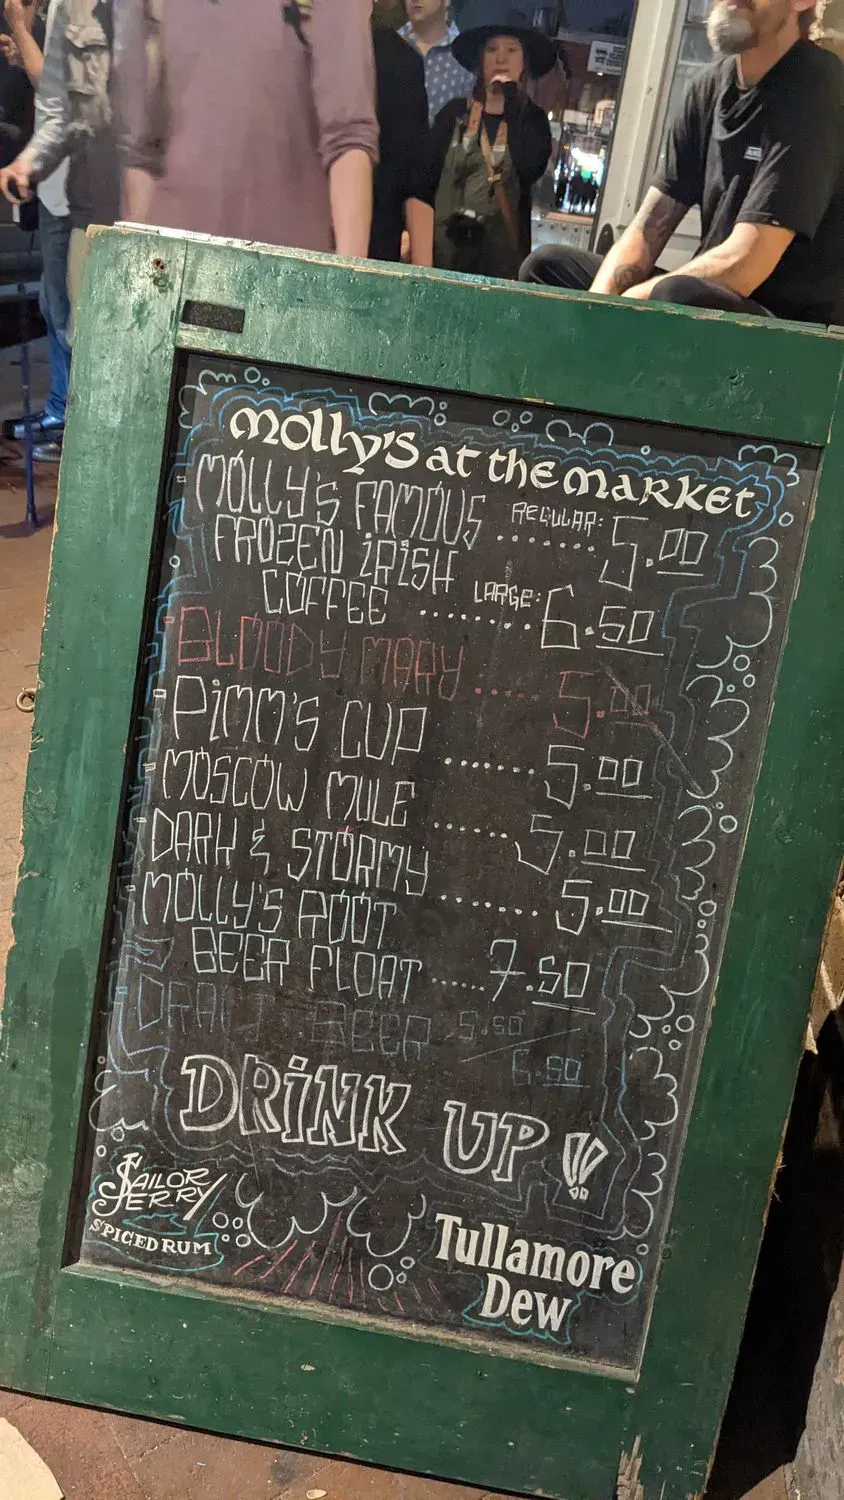 Molly's at the Market
- MOLLY'S FAMOUS REGULAR: 5.00
FROZEN IRISH
COFFEE ........ LARGE: 6.50
- BLOODY MARY ..... 5.00
- PIMM'S CUP ....... 5.00
- MOSCOW MULE ...... 5.00
- DARK & STORMY ....... 5.00
- MOLLY'S ROOT
BEER FLOAT ...... 7.50
- DRAFT BEER 5.50
6.50
DRINK UP!!
SAILOR
JERRY
SPICED RUM
Tullamore
Dew